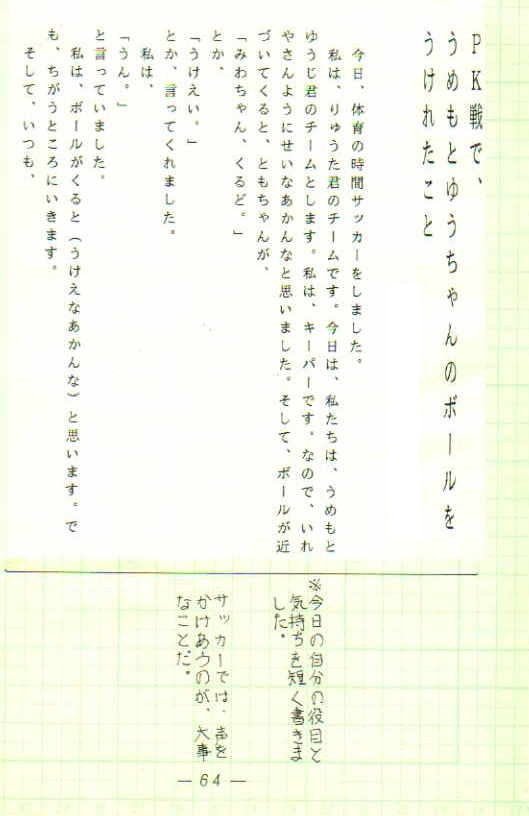 PK戦で、
うめもとゆうちゃんのボールを
うけれたこと
今日、体育の時間サッカーをしました。
私は、りゅうた君のチームです。今日は、私たちは、うめもと
ゆうじ君のチームとします。私は、キーパーです。なので、いれ
やさんようにせいなあかんなと思いました。そして、ボールが近
づいてくると、ともちゃんが、
「みわちゃん、くるど。」
とか、
「うけえい。」
とか、言ってくれました。
私は、
「うん。」
と言っていました。
私は、ボールがくると（うけえなあかんな）と思います。で
も、ちがうところにいきます。
そして、いつも、
※今日の自分の役目と
気持ちを短く書きま
した。
サッカーでは、声を
かけあうのが、大事
なことだ。
— 64 —